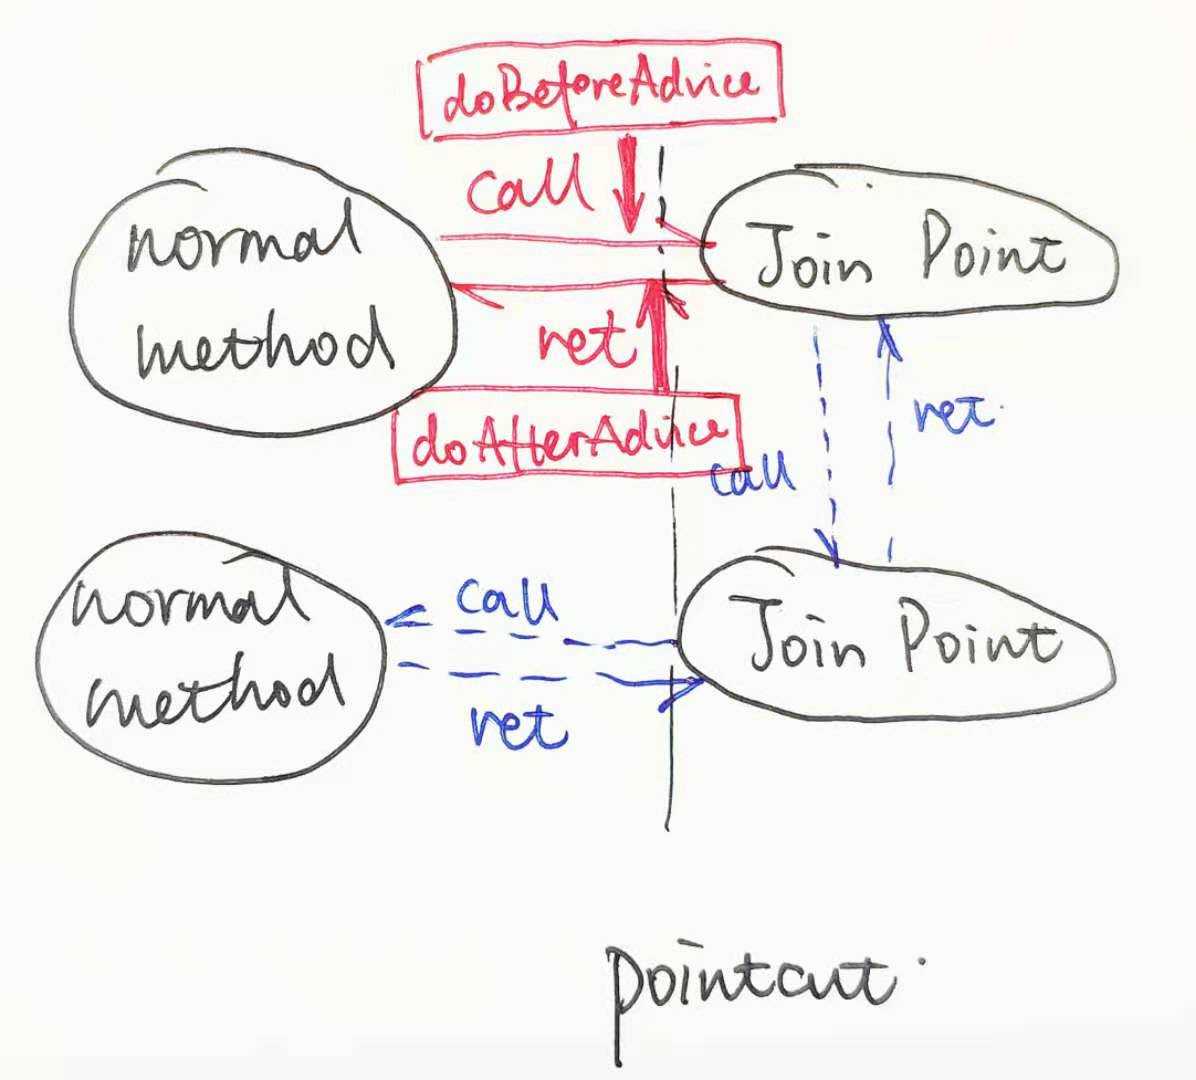 doBeforeAdvice
call
normal
method
Join Point
ret
doAfterAdvice
ret.
call
normal
method
call
ret
Join Point
pointcut.